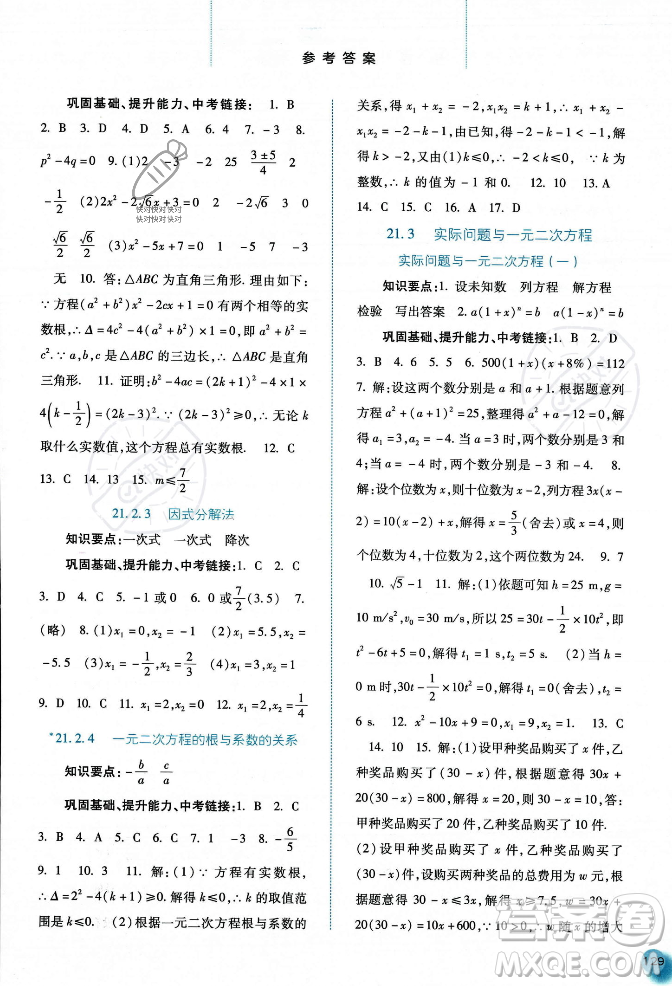 参考答案
巩固基础、提升能力、中考链接:1. B
2. B 3. D 4. D 5. A 6. 4 7. -3 8.
p²-4q=0 9. (1)2 -3 -2 (3±5)/4 2
-1/2 (2)2x²-2√6x+3=0 2 -2√6 3
快对快对快对
快对快对快对
√6/2 √6/2 (3)x²-5x+7=0 1 -5 7 -3
无 10. 答:△ABC为直角三角形. 理由:
∵方程(a²+b²)x²-2cx+1=0有两个相等的实
数根,∴Δ=4c²-4(a²+b²)×1=0,∴a²+b²=
c². ∵a,b,c是△ABC的三边长,∴△ABC是直角
三角形. 11. 证明:b²-4ac=(2k+1)²-4×1×
4(k-1/2)=(2k-3)²,∵(2k-3)²≥0,∴无论k
取什么实数值,这个方程总有实数根. 12. C
13. C 14. D 15. m≤7/2
21.2.3 因式分解法
知识要点:一次式 一次式 降次
巩固基础、提升能力、中考链接:1. C 2. C
3. D 4. D 5. -1或0 6. 0或7/2(3.5) 7.
(略) 8. (1)x₁=0,x₂=-1 (2)x₁=5.5,x₂=
-5.5 (3)x₁=-1/2,x₂=2/3 (4)x₁=3,x₂=0
9. D 10. C 11. C 12. x₁=2,x₂=1/4
*21.2.4 一元二次方程的根与系数的关系
知识要点:-b/a c/a
巩固基础、提升能力、中考链接:1. B 2. C
3. B 4. A 5. C 6. 5 7. 1 -3 8. -6/5
9. 1 10. 3 11. 解:(1)∵方程有实数根,
∴Δ=2²-4(k+1)≥0,解得k≤0,∴k的取值范
围是k≤0. (2)根据一元二次方程根与系数的
关系,得x₁+x₂=-2,x₁x₂=k+1,∴x₁+x₂-
x₁x₂=-2-k-1,由已知,得-2-k-1<-1,解
得k>-2,又由(1)k≤0,∴-2<k≤0. ∵k为
整数,∴k的值为-1和0. 12. 10 13. A
14. C 15. C 16. A 17. D
21.3 实际问题与一元二次方程
实际问题与一元二次方程(一)
知识要点:1. 设未知数 列方程 解方程
检验 写出答案 2. a(1+x)ⁿ=b a(1-x)ⁿ=b
巩固基础、提升能力、中考链接:1. B 2. D
3. B 4. 6 5. 5 6. 500(1+x)(x+8%)=112
7. 解:设这两个数分别是a和a+1. 根据题意列
方程a²+(a+1)²=25,整理得a²+a-12=0,解
得a₁=3,a₂=-4,∴这两个数分别为3,4. 8.
解:设个位数为x,则十位数为x-2,列方程3x(x-
2)=10(x-2)+x,解得x=5/3(舍去)或x=4,则
个位数为4,十位数为2,这个两位数为24. 9. 7
10. √5-1 11. 解:(1)依题可知h=24m,g=
10 m/s²,v₀=10 m/s,所以h=v₀t-1/2×10t²,即
t²-6t+5=0. (2)当h=
0 m时,30t-1/2×10t²=0,解得t=0(舍去)或t=
6 s. 12. x²-10x+9=0 13. C
14. 10 15. 解:(1)设甲种奖品购买了x件,乙
种奖品购买了(30-x)件,根据题意得30x+
20(30-x)=800,解得x=20,则30-x=10,答:
甲种奖品购买了20件,乙种奖品购买了10件.
(2)设甲种奖品购买了x件,乙种奖品购买了
(30-x)件,设购买两种奖品的总费用为w元,
根据题意得30-x≤3x,解得x≥7.5,w=30x+
20(30-x)=10x+600,∵10>0,∴w随x的增大
答案圈
MXQE.COM
129